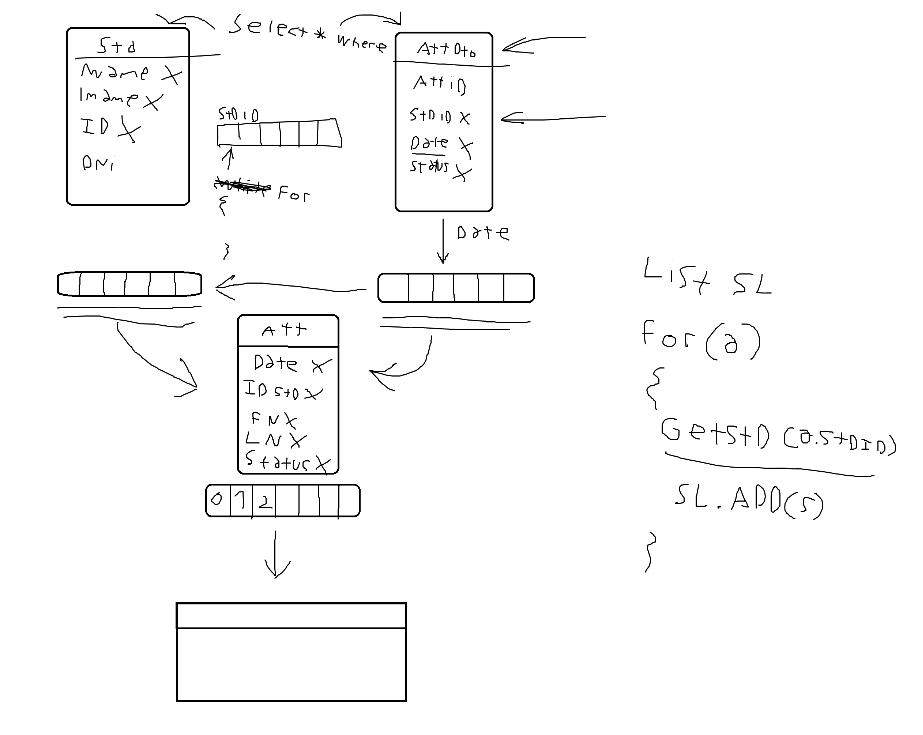 Select * where
Std
Name X
lname X
ID X
DNI
StDiD
For
{
}
AttDtb
AttiD
StDiD X
Date X
Status X
Date
Att
Date X
IDStD X
FN X
LN X
Status X
0 1 2
List SL
For (a)
{
GetStD (a.StDID)
SL.ADD(S)
}